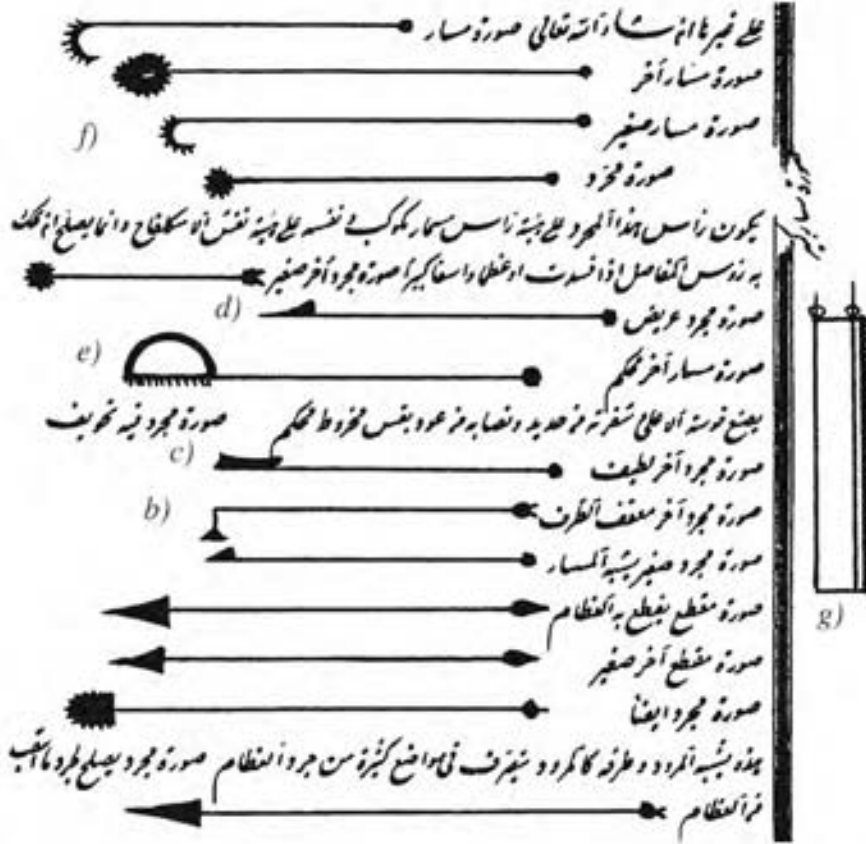 على غيرها ان شاء الله تعالى صورة منشار
صورة منشار آخر
صورة منشار صغير
f)
صورة مجرد
يكون رأس هذا المجرد على هيئة رأس مسمار نفسه على هيئة نقش
به رؤس المفاصل اذا فسدت او عظما واسعا كبيرا صورة مجرد آخر صغير
d)
صورة مجرد عريض
e)
صورة منشار آخر محكم
يصنع قوسه الاعلى شفرته من حديد ونصابه من عود بقس مخروط محكم صورة مجرد فيه تجويف
c)
صورة مجرد آخر لطيف
b)
صورة مجرد آخر معقف الطرف
صورة مجرد صغير يشبه المسبار
صورة مقطع يقطع به العظام
صورة مقطع آخر صغير
صورة مجرد ايضا
هذه يشبه المرود وطرفه كالمرود يتصرف في مواضع كثيرة من جرد العظام صورة مجرد يصلح لجرد ما
من العظام
صورة منشار كبير
g)